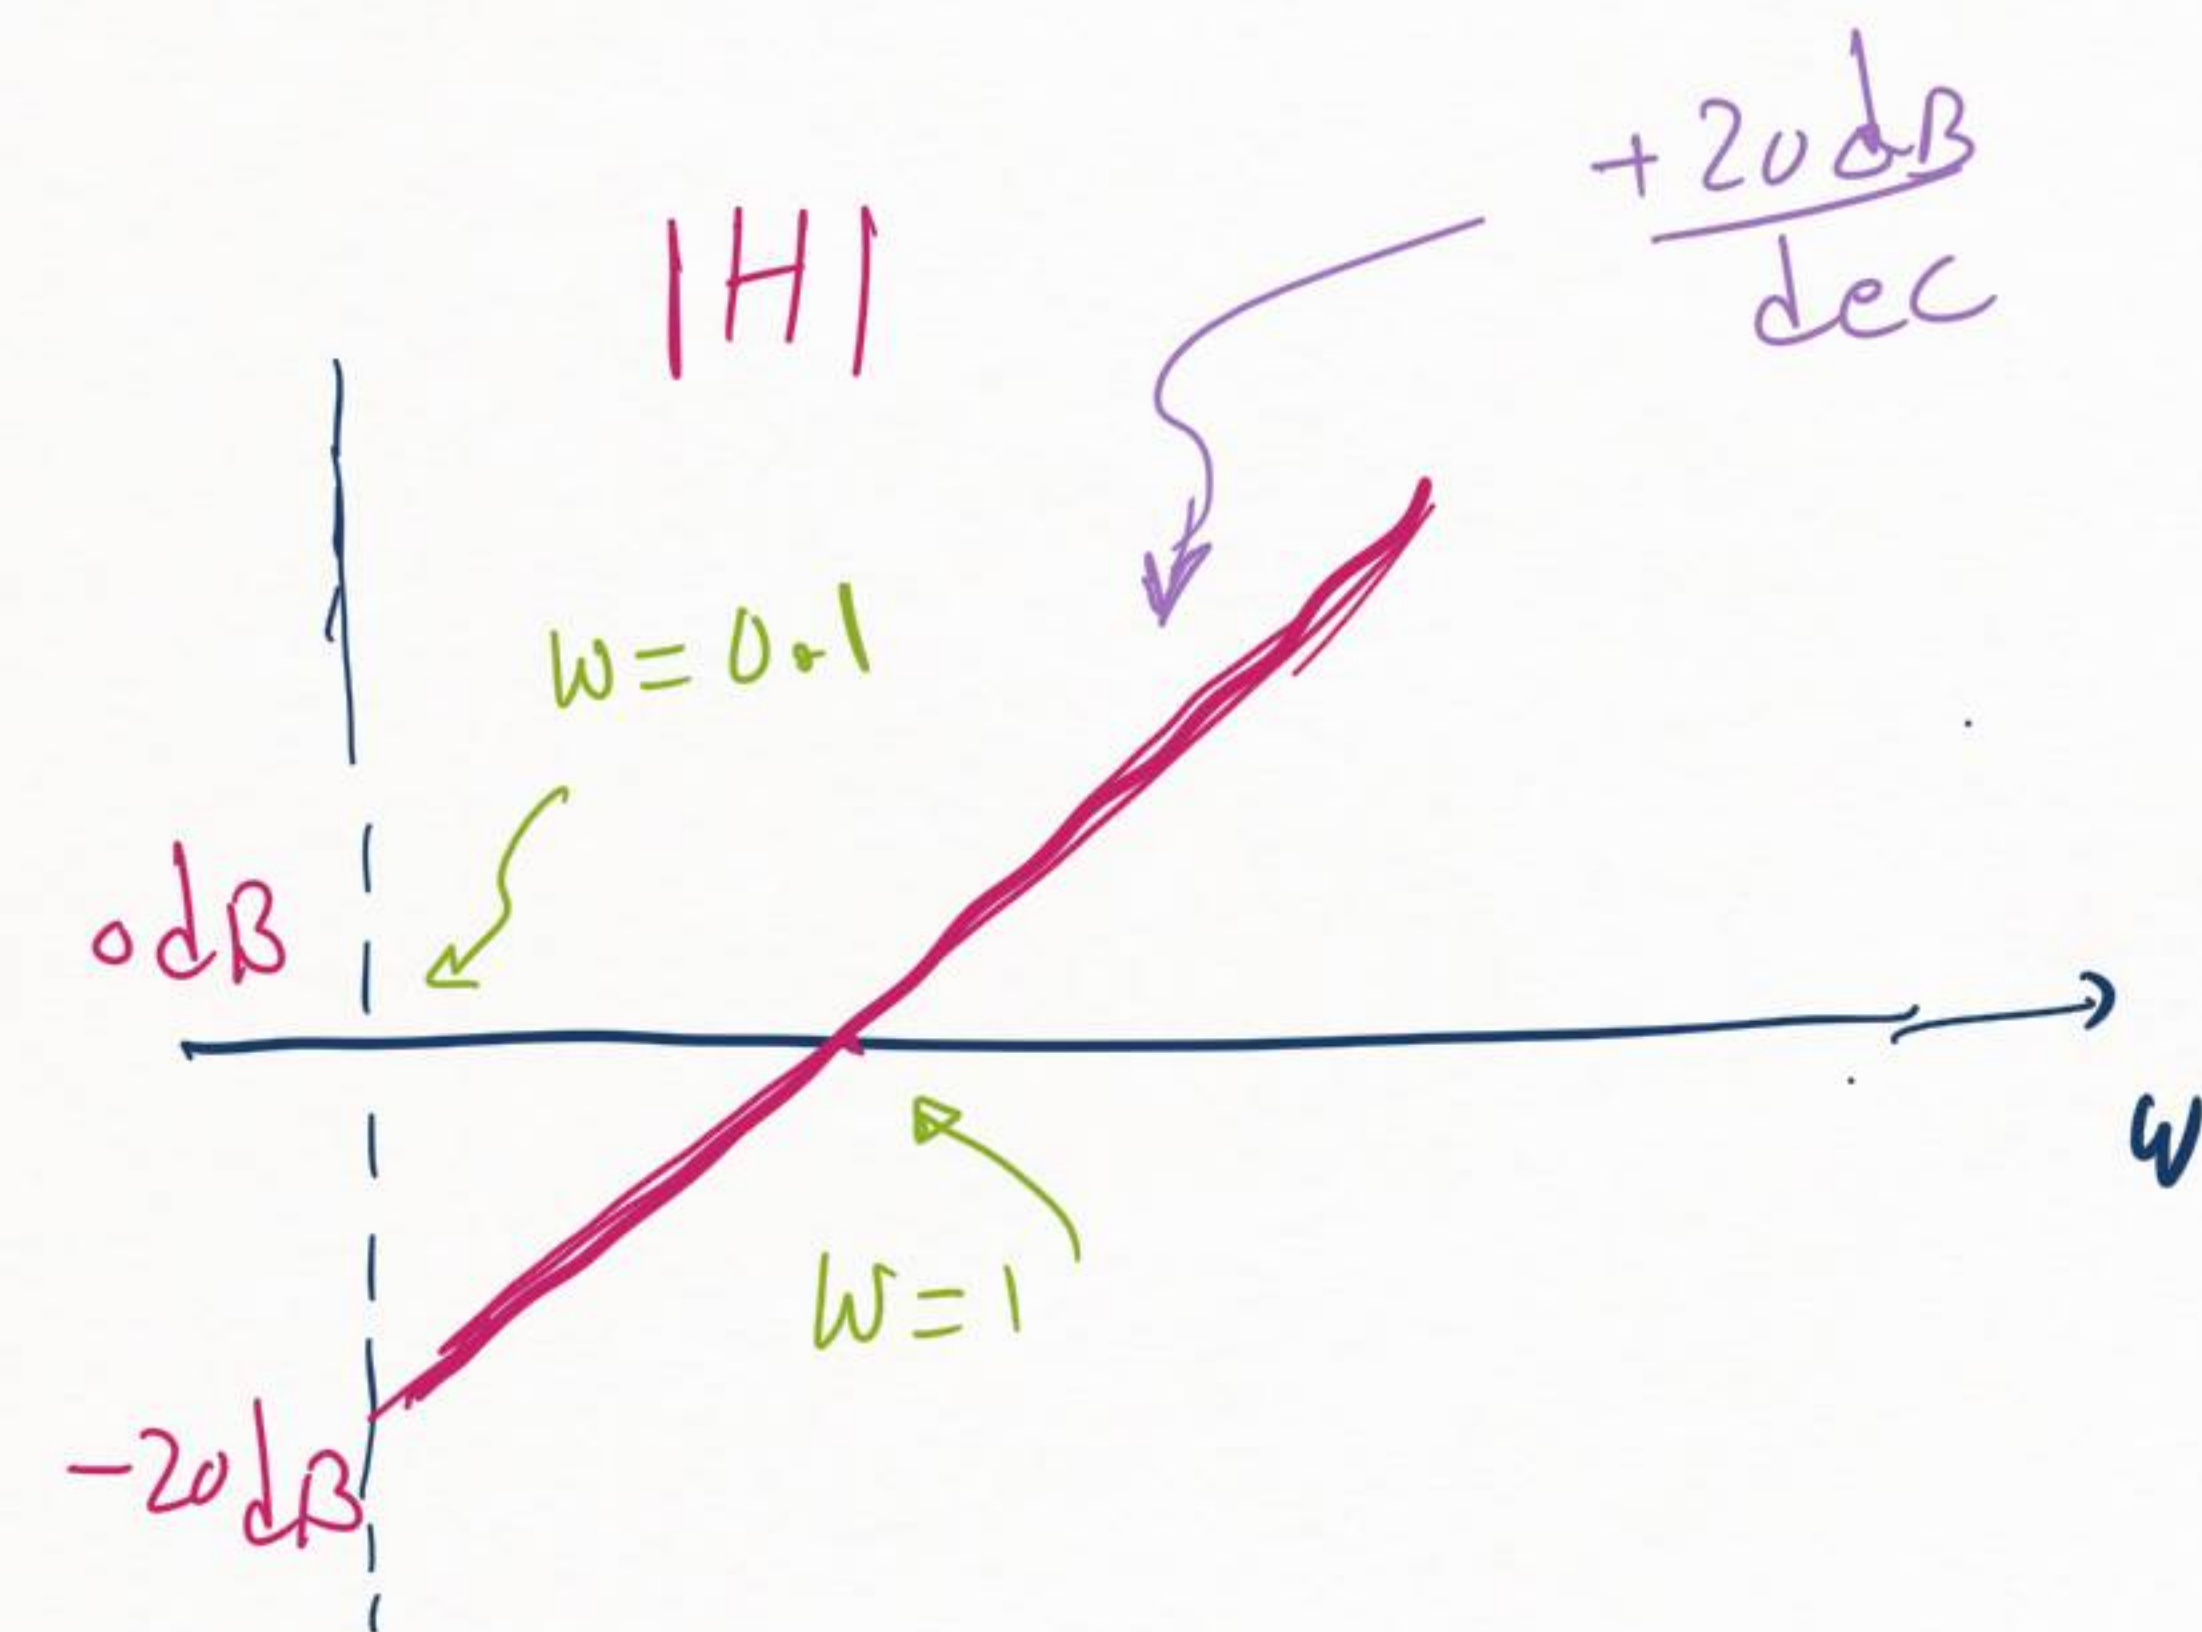 +20dB
dec
|H|
W=0.1
0dB
W
W=1
-20dB